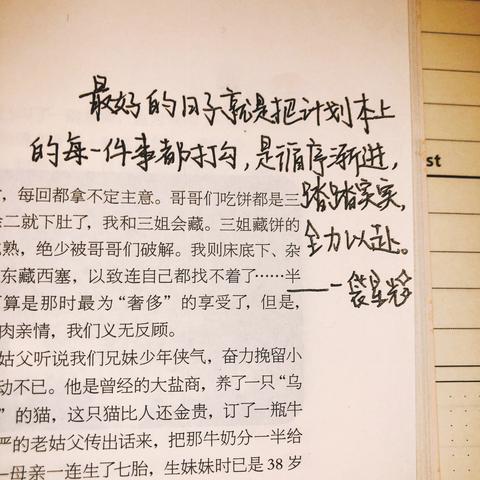 最好的日子就是把计划本上
的每一件事都打勾,是循序渐进,
踏踏实实,
全力以赴。
——袋星
st
,每回都拿不定主意。哥哥们吃饼都是三
二就下肚了,我和三姐会藏。三姐藏饼的
熟,绝少被哥哥们破解。我则床底下、杂
东藏西塞,以致连自己都找不着了……半
算是那时最为“奢侈”的享受了,但是,
肉亲情,我们义无反顾。
姑父听说我们兄妹少年侠气,奋力挽留小
动不已。他是曾经的大盐商,养了一只“乌
”的猫,这只猫比人还金贵,订了一瓶牛
的老姑父传出话来,把那牛奶分一半给
母亲一连生了七胎,生妹妹时已是 38 岁